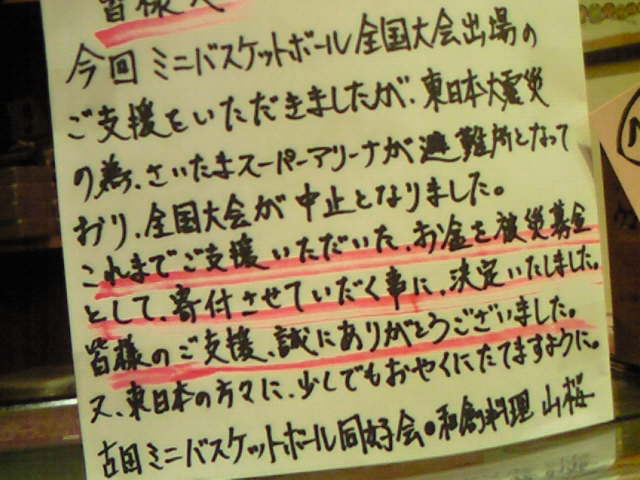 皆様へ
今回ミニバスケットボール全国大会出場の
ご支援をいただきましたが、東日本大震災
の為、さいたまスーパーアリーナが避難所となって
おり、全国大会が中止となりました。
これまでご支援いただいた、お金を被災募金
として、寄付させていだく事に、決定いたしました。
皆様のご支援、誠にありがとうございました。
又、東日本の方々に、少しでもおやくにたてますように。
古田ミニバスケットボール同好会●和創料理 山桜